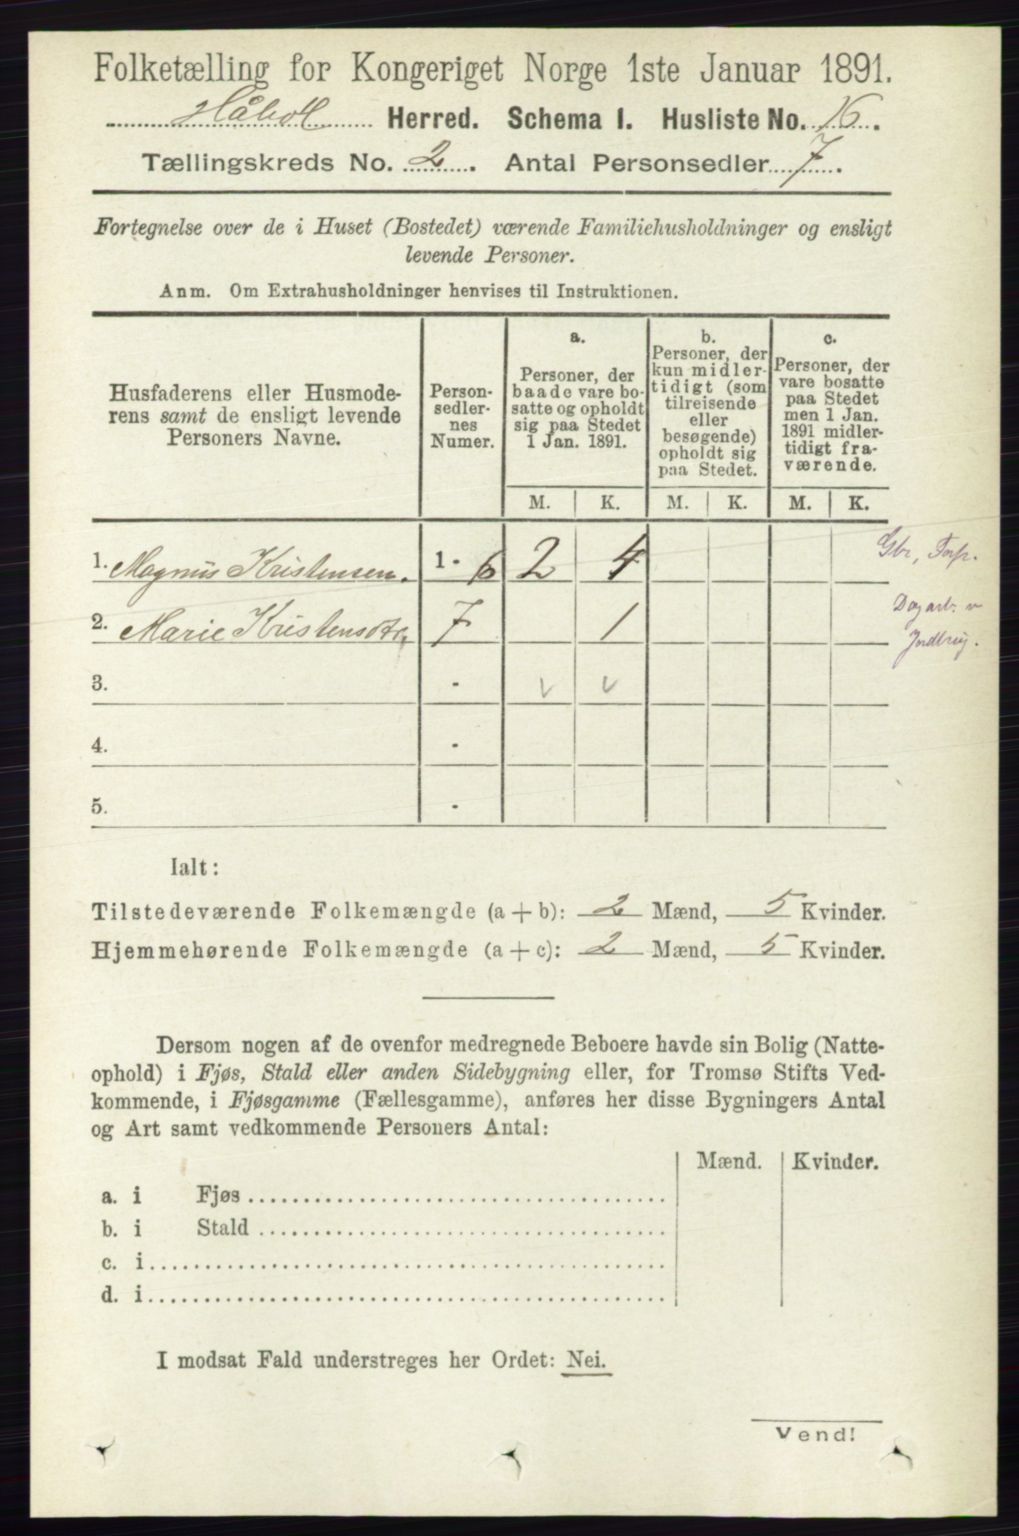 Folketælling for Kongeriget Norge 1ste Januar 1891.
Håbøl Herred. Schema I. Husliste No. 16.
Tællingskreds No. 2. Antal Personsedler 7.
Fortegnelse over de i Huset (Bostedet) værende Familiehusholdninger og ensligt
levende Personer.
Anm. Om Extrahusholdninger henvises til Instruktionen.
Husfaderens eller Husmode-
rens samt de ensligt levende
Personers Navne.
Person-
sedler-
nes
Numer.
a.
Personer, der
baade vare bo-
satte og opholdt
sig paa Stedet
1 Jan. 1891.
b.
Personer, der
kun midler-
tidigt (som
tilreisende
eller
besøgende)
opholdt sig
paa Stedet.
c.
Personer, der
vare bosatte
paa Stedet
men 1 Jan.
1891 midler-
tidigt fra-
værende.
M. K. M. K. M. K.
1. Magnus Kristensen. 1 - 6 2 4 Gbr, Forp.
2. Marie Kristensdtr, 7 1 Dagarb. v
Jordbrug.
3. - v v
4. -
5. -
Ialt:
Tilstedeværende Folkemængde (a + b): 2 Mænd, 5 Kvinder.
Hjemmehørende Folkemængde (a + c): 2 Mænd, 5 Kvinder.
Dersom nogen af de ovenfor medregnede Beboere havde sin Bolig (Natte-
ophold) i Fjøs, Stald eller anden Sidebygning eller, for Tromsø Stifts Ved-
kommende, i Fjøsgamme (Fællesgamme), anføres her disse Bygningers Antal
og Art samt vedkommende Personers Antal:
Mænd. Kvinder.
a. i Fjøs
b. i Stald
c. i
d. i
I modsat Fald understreges her Ordet: Nei.
Vend!